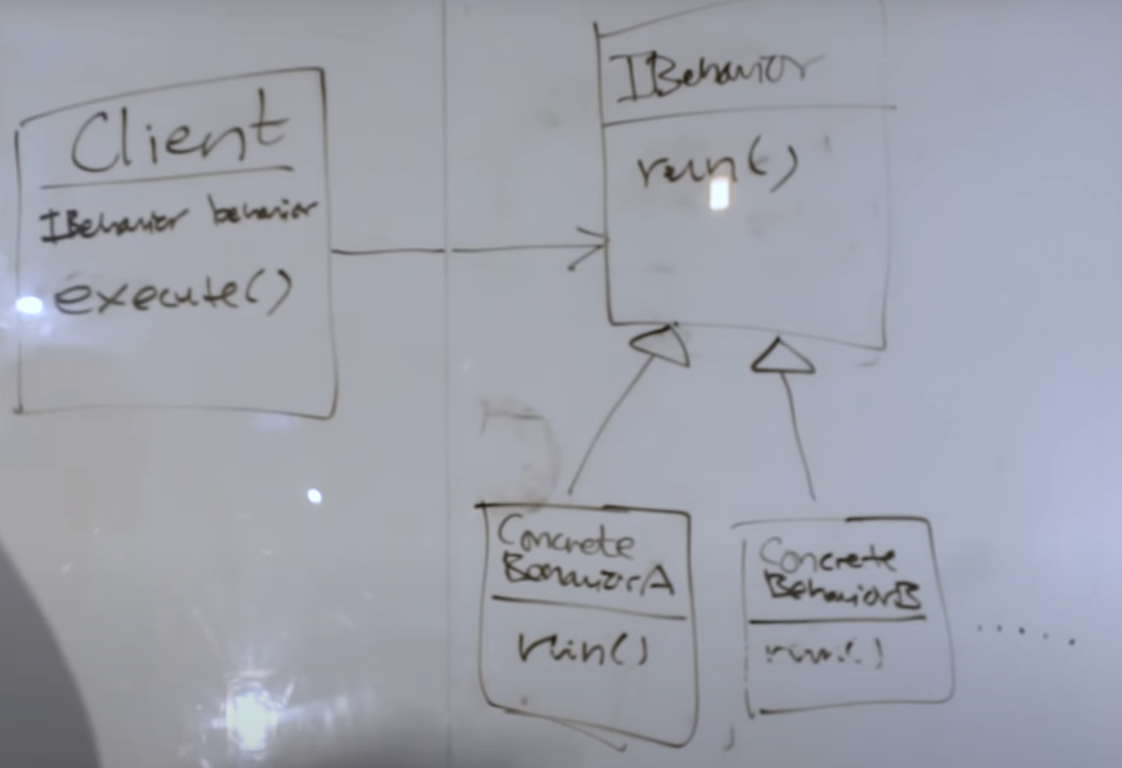 Client
IBehavior behavior
execute()
IBehavior
run()
Concrete
BehaviorA
run()
Concrete
BehaviorB
run()
.....